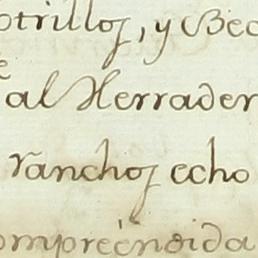 otrillos, y Bec
e al Herrader
ranchos echo
ompreéndida